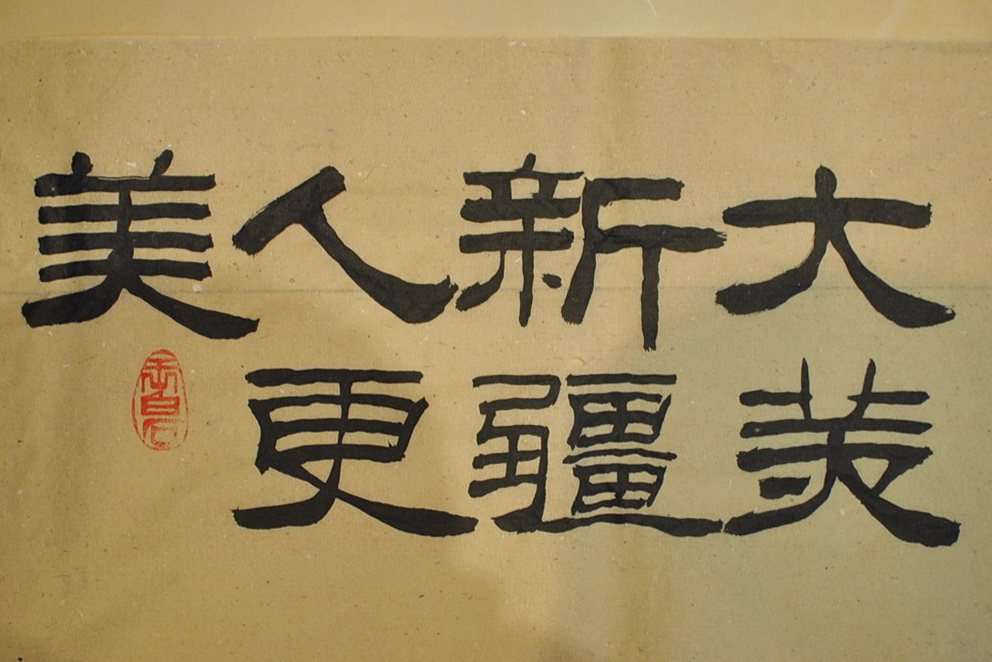 大美
新疆
人更
美